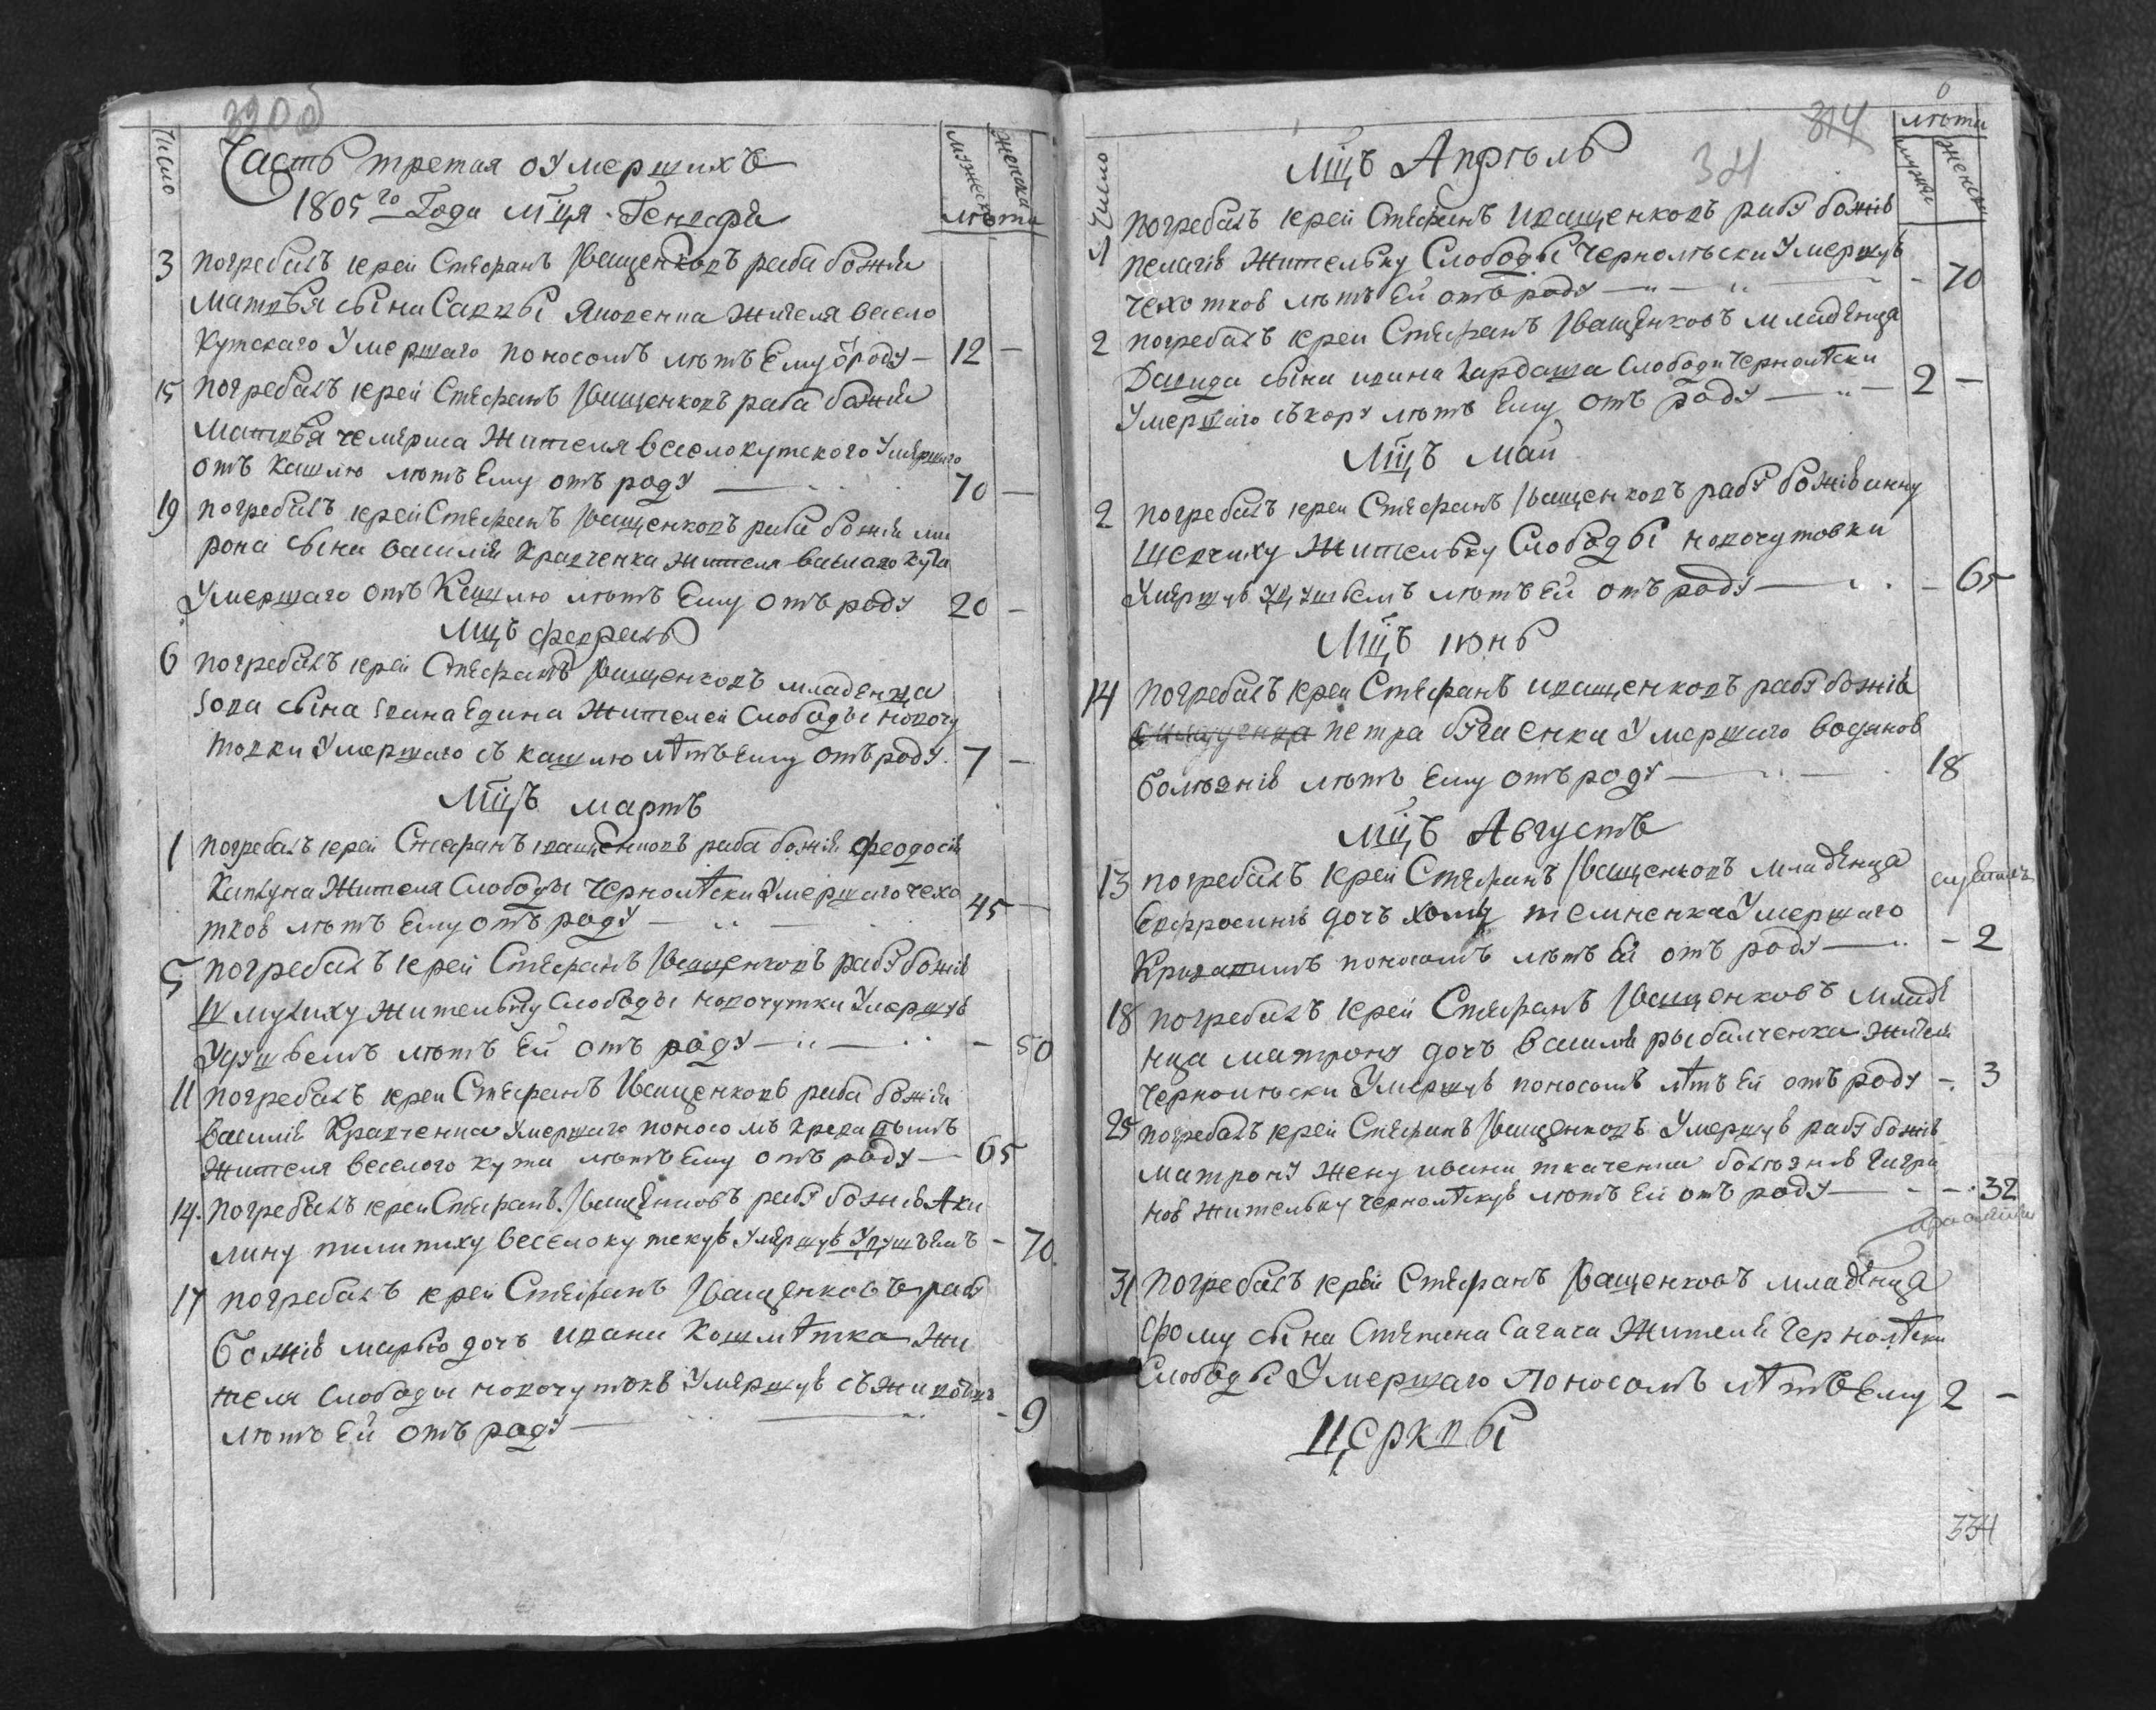 Число
Часть третая оумершихъ
1805го Года мця Генваря
мужеска женска
лѣта
3 погребалъ іерей Стефанъ Іващенковъ раба божія
Матвѣя сына Саввы Яковенка жителя весело
Кутского Умершаго поносомъ лѣтъ Ему ѿроду — 12 —
15 погребалъ іерей Стефанъ Іващенковъ раба божія
Матвѣя жителя веселокутского Умершаго
отъ кашлю лѣтъ Ему отъ роду — 70 —
19 погребалъ іерей Стефанъ Іващенковъ раба божія ми
рона сына василія Кравченка жителя Кута
Умершаго отъ Кашлю лѣтъ Ему отъ роду 20 —
Мцъ февраль
6 погребалъ іерей Стефанъ Іващенковъ младенца
сына Івана Едина жителей Слободы новочу
товки Умершаго съ кашлю лѣтъ Ему отъ роду. 7 —
Мцъ мартъ
1 погребалъ іерей Стефанъ іващенковъ раба божія феодосія
жителя Слободы Чернолѣски Умершаго чехо
ткою лѣтъ Ему отъ роду — 45 —
5 погребалъ іерей Стефанъ Іващенковъ рабу божію
жителку Слободы новочутки Умершую
лѣтъ Ей отъ роду — 50
11 погребалъ іерей Стефанъ Іващенковъ раба божія
василія Кравченка Умершаго поносомъ
жителя веселого кута лѣтъ Ему отъ роду — 65
14. погребалъ іерей Стефанъ Іващенковъ рабу божію Аки
лину пилипиху веселокутскую Умершую — 70
17 погребалъ іерей Стефанъ Іващенковъ рабу
божію марію дочъ ивана жи
теля Слободы новочутовки Умершую
лѣтъ Ей отъ роду — 9
Число
Мцъ Апрѣль
314
лѣта
мужеска женска
погребалъ іерей Стефанъ иващенковъ рабу божію
пелагію жителку Слободы чернолѣски Умершую
чехоткою лѣтъ Ей отъ роду — 70
2 погребалъ іерей Стефанъ Іващенковъ младенца
Давида сына ивана Слободи чернолѣски
Умершаго съ кору лѣтъ Ему отъ роду — 2 —
Мцъ май
2 погребалъ іерей Стефанъ Іващенковъ рабу божію анну
Шевчиху жителку Слободы новочутовки
Умершую лѣтъ Ей отъ роду — 65
Мцъ іюнь
14 погребалъ іерей Стефанъ иващенковъ рабу божію
петра Умершаго водяною
болѣзнію лѣтъ Ему отъ роду — 18
Мцъ Августъ
13 погребалъ іерей Стефанъ Іващенковъ младенца
Евфросинію дочъ хомы Умершаго
Кривавимъ поносомъ лѣтъ Ей отъ роду — 2
18 погребалъ іерей Стефанъ Іващенковъ младе
нца матрону дочъ василія рыбалченка жителя
чернолѣски Умершую поносомъ лѣтъ Ей отъ роду — 3
25 погребалъ іерей Стефанъ Іващенковъ Умершую рабу божію
матрону жену ивана ткаченка болѣзнію
жителку чернолѣскую лѣтъ Ей отъ роду — 32
31 погребалъ іерей Стефанъ Іващенковъ младенца
фому сына Стефана жителя Чернолѣски
Слободы Умершаго Поносомъ лѣтъ Ему 2 —
Церквы
334